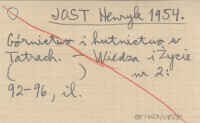 JOST Henryk 1954.
Górnictwo i hutnictwo w
Tatrach. — Wiedza i Życie
( ) nr 2:
92-96, il.